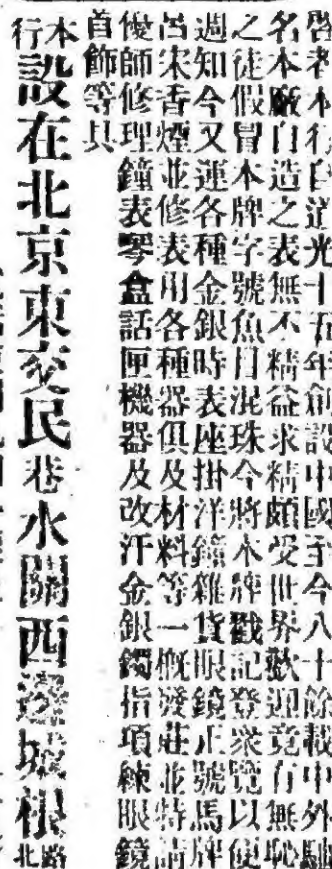 啓者本行自道光十五年創設中國至今八十餘載中外馳
名本廠自造之表無不精益求精頗受世界歡迎竟有無恥
之徒假冒本牌字號魚目混珠今將本牌戳記登衆覽以便
週知今又運各種金銀時表座掛洋鐘雜貨眼鏡正號馬牌
呂宋香煙並修表用各種器俱及材料等一概發莊並特請
優師修理鐘表琴盒話匣機器及改汗金銀鐲指項練眼鏡
首飾等具
本行設在北京東交民巷水關西邊城根路北